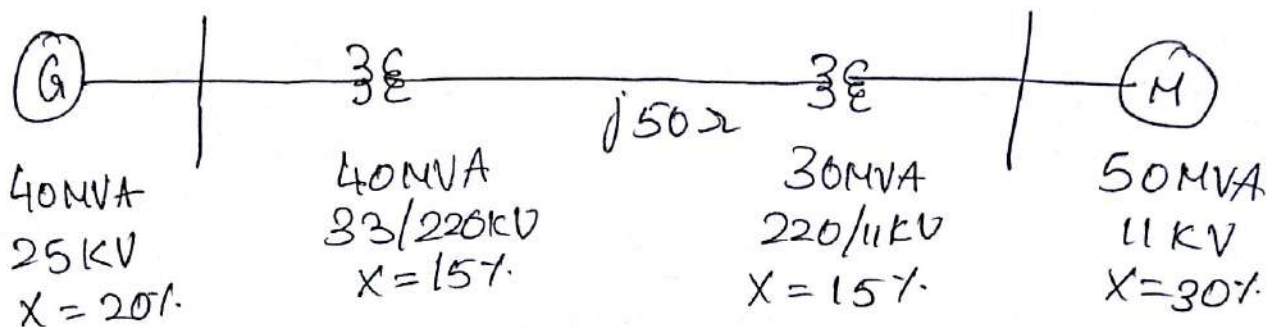 G
M
j50Ω
40MVA
25KV
X=20%.
40MVA
33/220KV
X=15%.
30MVA
220/11KV
X=15%.
50MVA
11KV
X=30%